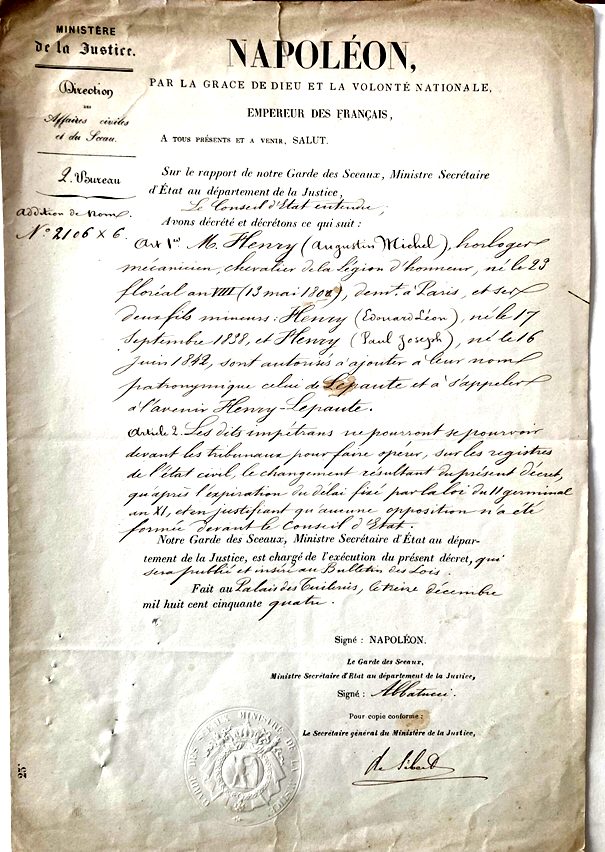 MINISTÈRE
de la Justice.
Direction
DES
Affaires civiles
et du Sceau.
2. Bureau
Addition de Nom.
N° 2106 X 6.
NAPOLÉON,
PAR LA GRACE DE DIEU ET LA VOLONTÉ NATIONALE,
EMPEREUR DES FRANÇAIS,
A TOUS PRÉSENTS ET A VENIR, SALUT.
Sur le rapport de notre Garde des Sceaux, Ministre Secrétaire
d'État au département de la Justice,
Le Conseil d'Etat entendu,
Avons décrété et décrétons ce qui suit :
Art 1er M. Henry (Augustin Michel), horloger
mécanicien, chevalier de la Légion d'honneur, né le 23
floréal an VIII (13 mai 1800), demt. à Paris, et ses
deux fils mineurs : Henry (Edouard Léon), né le 17
Septembre 1838, et Henry (Paul Joseph), né le 16
Juin 1842, sont autorisés à ajouter à leur nom
patronymique celui de Lepaute et à s'appeler
à l'avenir Henry-Lepaute.
Article 2. Les dits impétrans ne pourront se pourvoir
devant les tribunaux pour faire opérer, sur les registres
de l'état civil, le changement résultant du présent décret,
qu'après l'expiration du délai fixé par la loi du 11 germinal
an XI, et en justifiant qu'aucune opposition n'a été
formée devant le Conseil d'Etat.
Notre Garde des Sceaux, Ministre Secrétaire d'État au dépar-
tement de la Justice, est chargé de l'exécution du présent décret, qui
sera publié et inséré au Bulletin des Lois.
Fait au Palais des Tuileries, le treize décembre
mil huit cent cinquante quatre.
Signé : NAPOLÉON.
Le Garde des Sceaux,
Ministre Secrétaire d'État au département de la Justice,
Signé : Abbatucci.
Pour copie conforme :
Le Secrétaire général du Ministère de la Justice,
de Sibert
GARDE DES SCEAUX MINISTRE DE LA JUSTICE